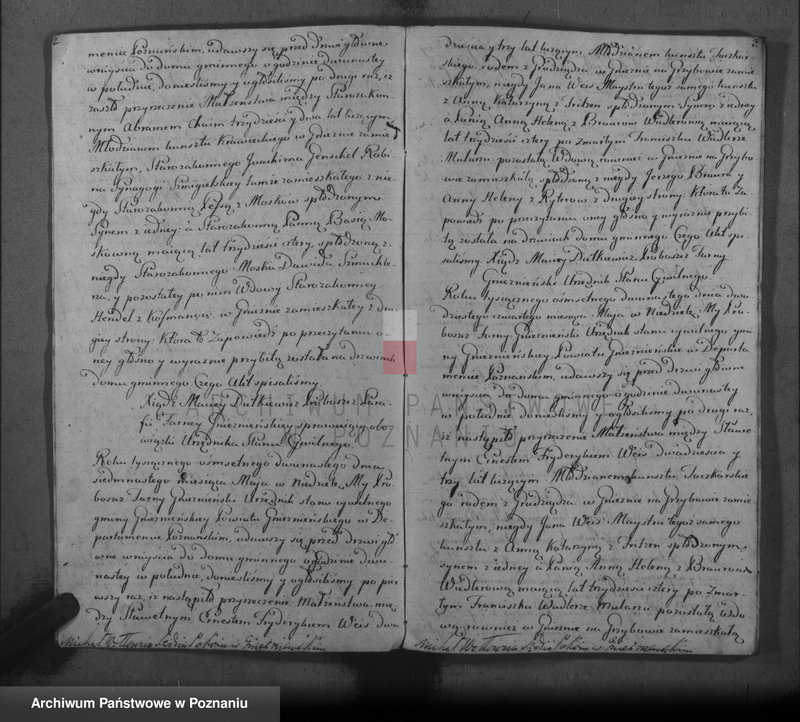 2
mencie Poznańskim, udawszy się przed drzwi główne
wniyścia do domu gminnego o godzinie dwunastey
w południe, donieśliśmy y ogłosiliśmy po drugi raz, iż
zaszło przyrzeczenie Małżeństwa między Starozakon
nym Abranem Chaim trzydzieści y dwa lat liczącym
Młodzianem kunsztu Krawieckiego w Gnieźnie zamie
szkałym, Starozakonnego Joachima Jenschel Rabi
na Synagogi Smigielskiey tamże zamieszkałego z nie
gdy Starozakonną z Mosków spłodzonym
Synem z iedney: a Starozakonną Panną Basią Mo
skówną maiącą lat trzydzieści cztery, spłodzoną z
niegdy Starozakonnego Moska Dawida
na, y pozostałey po nim Wdowy Starozakonney
Hendel z w Gnieźnie zamieszkałey z dru
giey strony: Która to Zapowiedź po przeczytaniu o
ney głośno y wyraźnie przybitą została na drzwiach
domu gminnego Czego Akt spisaliśmy
Xiądz Maciey Dutkiewicz Proboszcz Para
fii Farney Gnieźnieńskiey sprawuiący obo
wiązki Urzędnika Stanu Cywilnego
Roku tysiącznego ośmsetnego dwunastego dnia
siedmnastego miesiąca Maja w Niedzielę, My Pro
boszcz Farny Gnieźnieński Urzędnik stanu cywilnego
gminy Gnieźnieńskiey Powiatu Gnieźnieńskiego w De
partamencie Poznańskim, udawszy się przed drzwi głó
wne wniyścia do domu gminnego o godzinie dwu
nastey w południe, donieśliśmy y ogłosiliśmy po pier
wszy raz, iż nastąpiło przyrzeczenie Małżeństwa mię
dzy Sławetnym Ernestem Fryderykiem Weis dwa
2
dzieścia y trzy lat liczącym Młodzianem kunsztu Toczkar
skiego, rodem z Grudziądza w Gnieźnie na Grzybowie zamie
szkałym, niegdy Jana Weis Maystra tegoż samego kunsztu
z Anną Katarzyną z spłodzonym Synem z iedney
a Panią Anną Heleną z Braurow Wudlerową maiącą
lat trzydzieści cztery po zmarłym Franciszku Wudlerze
Mularzu pozostałą Wdową, rownież w Gnieźnie na Grzybo
wie zamieszkałą, spłodzoną z niegdy Jerzego Braura y
Anny Heleny z z drugiey strony: Która to Za
powiedź po przeczytaniu oney głośno y wyraźnie przybi
tą została na drzwiach domu gminnego Czego Akt spi
saliśmy Xiądz Maciey Dutkiewicz Proboszcz Farny
Gnieźnieński Urzędnik Stanu Cywilnego
Roku tysiącznego ośmsetnego dwunastego dnia dwu
dziestego czwartego miesiąca Maja w Niedzielę, My Pro
boszcz Farny Gnieźnieński Urzędnik stanu cywilnego gmi
ny Gnieźnieńskiey Powiatu Gnieźnieńskie w Departa
mencie Poznańskim, udawszy się przed drzwi główne
wniyścia do domu gminnego o godzinie dwunastey
w południe donieśliśmy y ogłosiliśmy po drugi raz,
iż nastąpiło przyrzeczenie Małżeństwa między Sławe
tnym Ernestem Fryderykiem Weis dwadzieścia y
trzy lat liczącym Młodzianem kunsztu Toczkarskie
go rodem z Grudziądza w Gnieźnie na Grzybowie zamie
szkałym, niegdy Jana Weis Maystra tegoż samego
kunsztu z Anną Katarzyną z spłodzonym
synem z iedney: a Panią Anną Heleną z Braurow
Wudlerową maiącą lat trzydzieści cztery po zmar
łym Franciszku Wudlerze Mularzu pozostałą Wdo
wą rownież w Gnieźnie na Grzybowie zamieszkałą
ARCHIWUM PAŃSTWOWE
W POZNANIU
Archiwum Państwowe w Poznaniu